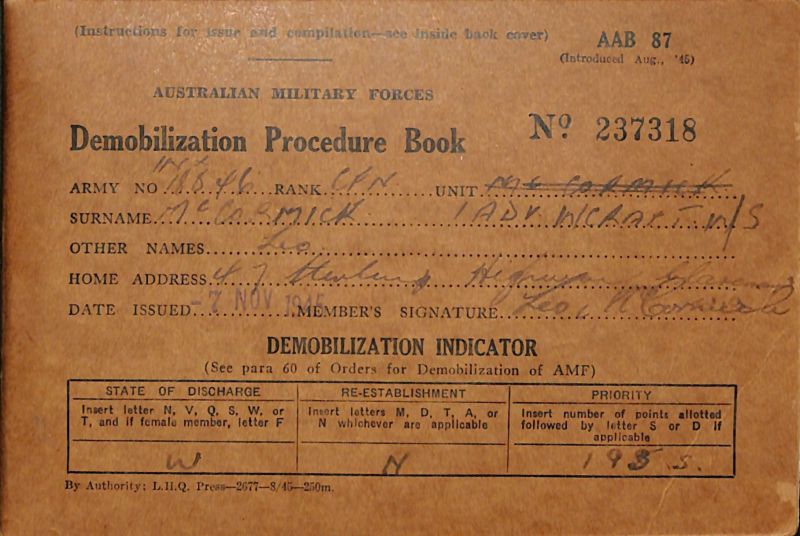 (Instructions for issue and compilation—see inside back cover)
AAB 87
(Introduced Aug., '45)
AUSTRALIAN MILITARY FORCES
Demobilization Procedure Book
No 237318
ARMY NO RANK CPN UNIT Mc CORMICK
SURNAME McCORMICK 1 ADV W/S
OTHER NAMES Leo
HOME ADDRESS Highway
DATE ISSUED -7 NOV 1945 MEMBER'S SIGNATURE Leo McCormick
DEMOBILIZATION INDICATOR
(See para 60 of Orders for Demobilization of AMF)
STATE OF DISCHARGE RE-ESTABLISHMENT PRIORITY
Insert letter N, V, Q, S, W, or Insert letters M, D, T, A, or Insert number of points allotted
T, and if female member, letter F N whichever are applicable followed by letter S or D if
applicable
W N 195 S.
By Authority: L.H.Q. Press—2677—8/45—250m.